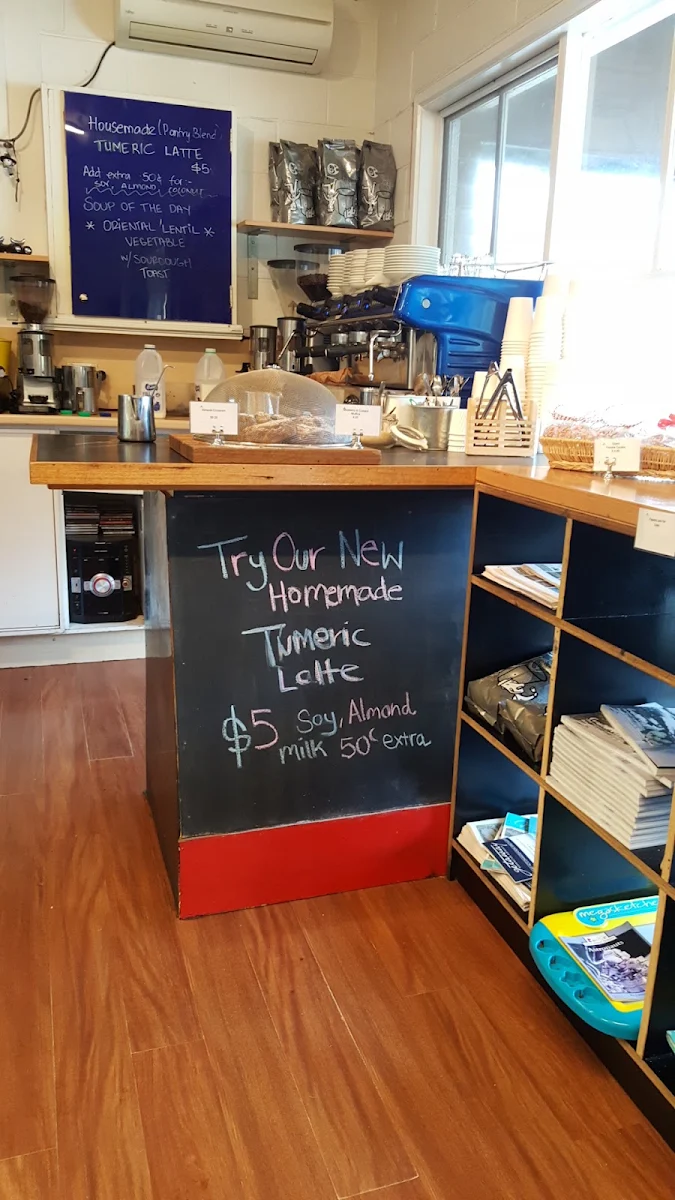 Housemade (Pantry Blend)
TUMERIC LATTE
$5
Add extra 50¢ for
SOY, ALMOND, COCONUT
SOUP OF THE DAY
* ORIENTAL LENTIL *
VEGETABLE
W/SOURDOUGH
TOAST
Try Our New
Homemade
Tumeric
Latte
$5 Soy, Almond
milk 50c extra
megasketcher